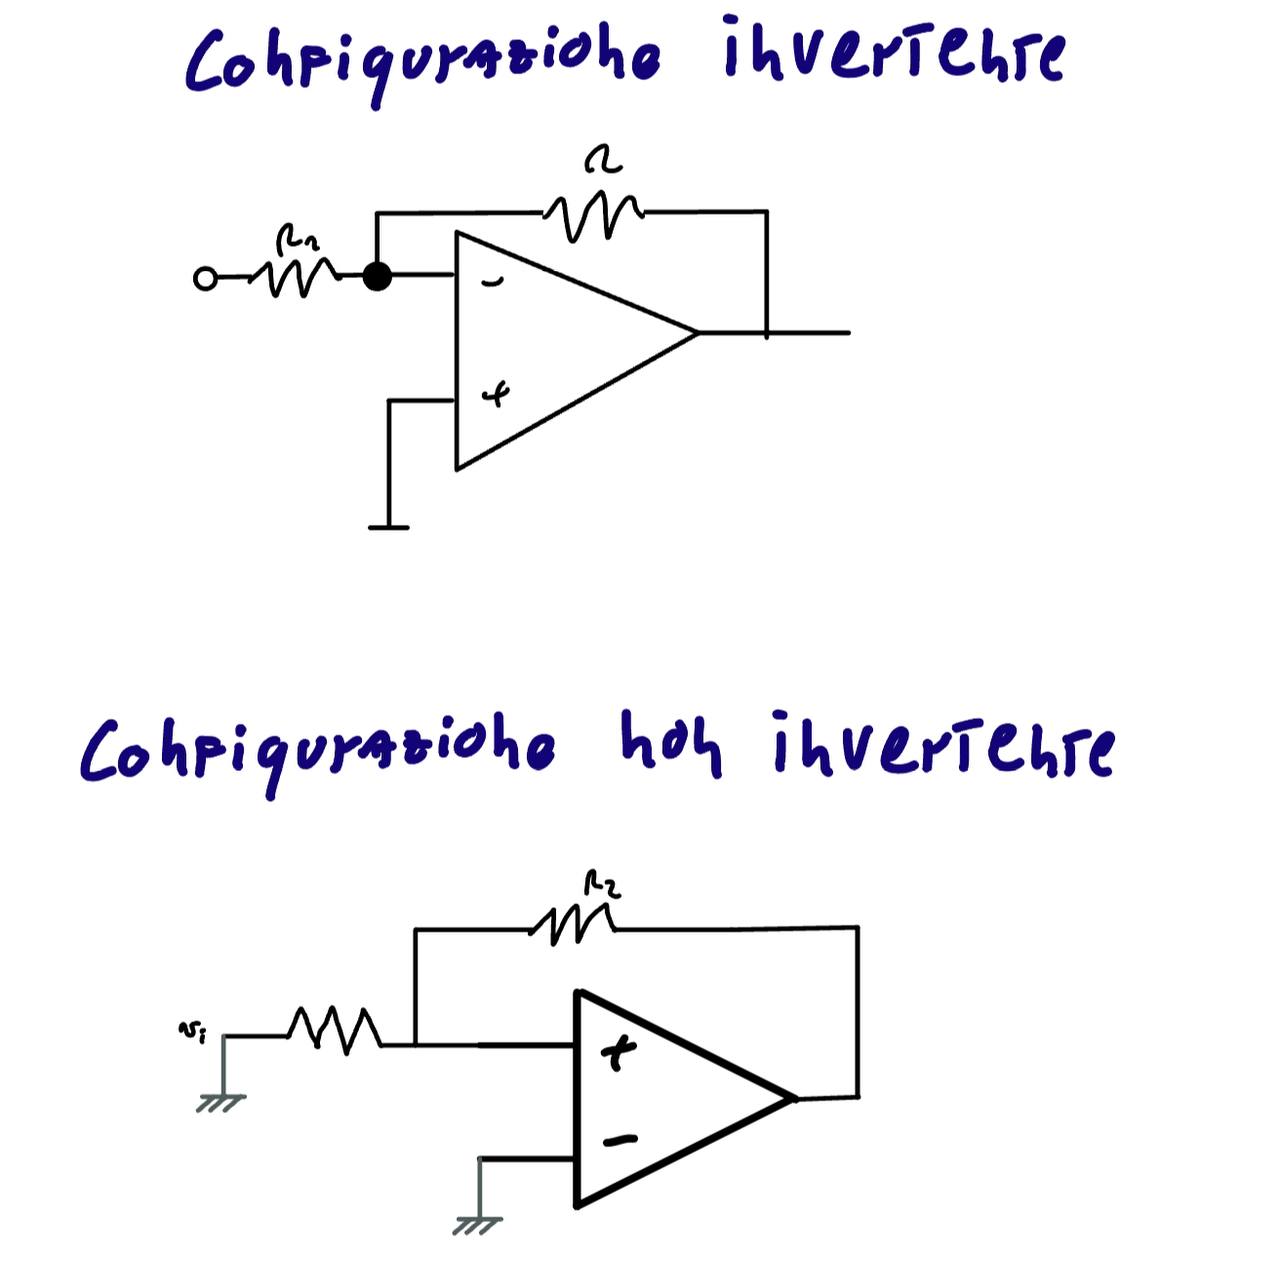 Configurazione invertente
R
R1
-
+
Configurazione non invertente
R2
vi
+
-